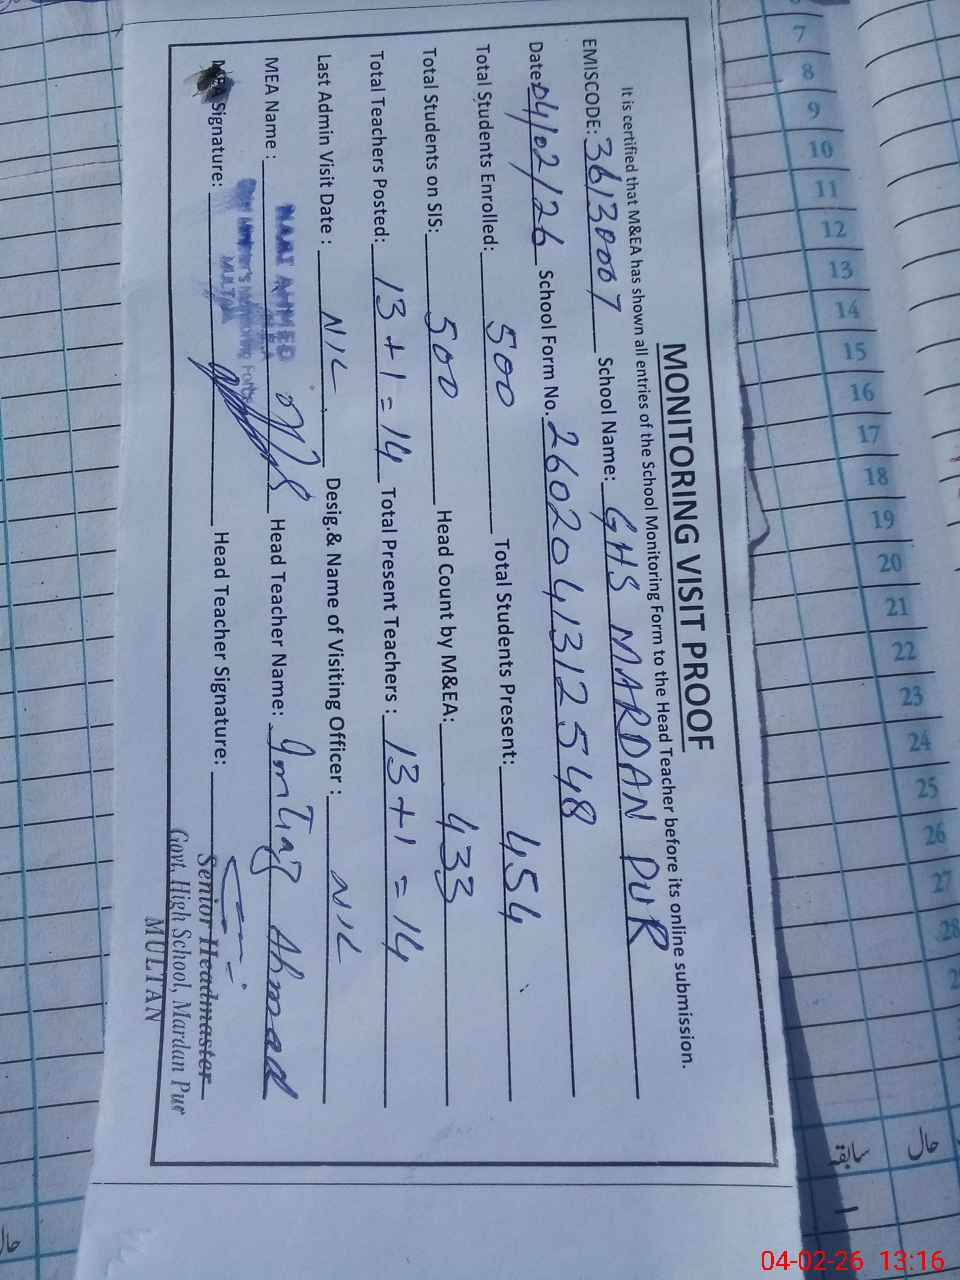 MONITORING VISIT PROOF
It is certified that M&EA has shown all entries of the School Monitoring Form to the Head Teacher before its online submission.
EMISCODE: 36130007 School Name: GHS MARDAN PUR
Date: 04/02/26 School Form No. 2602041312548
Total Students Enrolled: 500 Total Students Present: 454
Total Students on SIS: 500 Head Count by M&EA: 433
Total Teachers Posted: 13+1=14 Total Present Teachers : 13+1=14
Last Admin Visit Date : NIL Desig.& Name of Visiting Officer : NIL
MEA Name : AHMED Head Teacher Name: Imtiaz Ahmad
Signature: MULTAN Head Teacher Signature:
Senior Headmaster
Govt. High School, Mardan Pur
MULTAN
7
8
9
10
11
12
13
14
15
16
17
18
19
20
21
22
23
24
25
26
27
28
سابقہ
حال
04-02-26 13:16